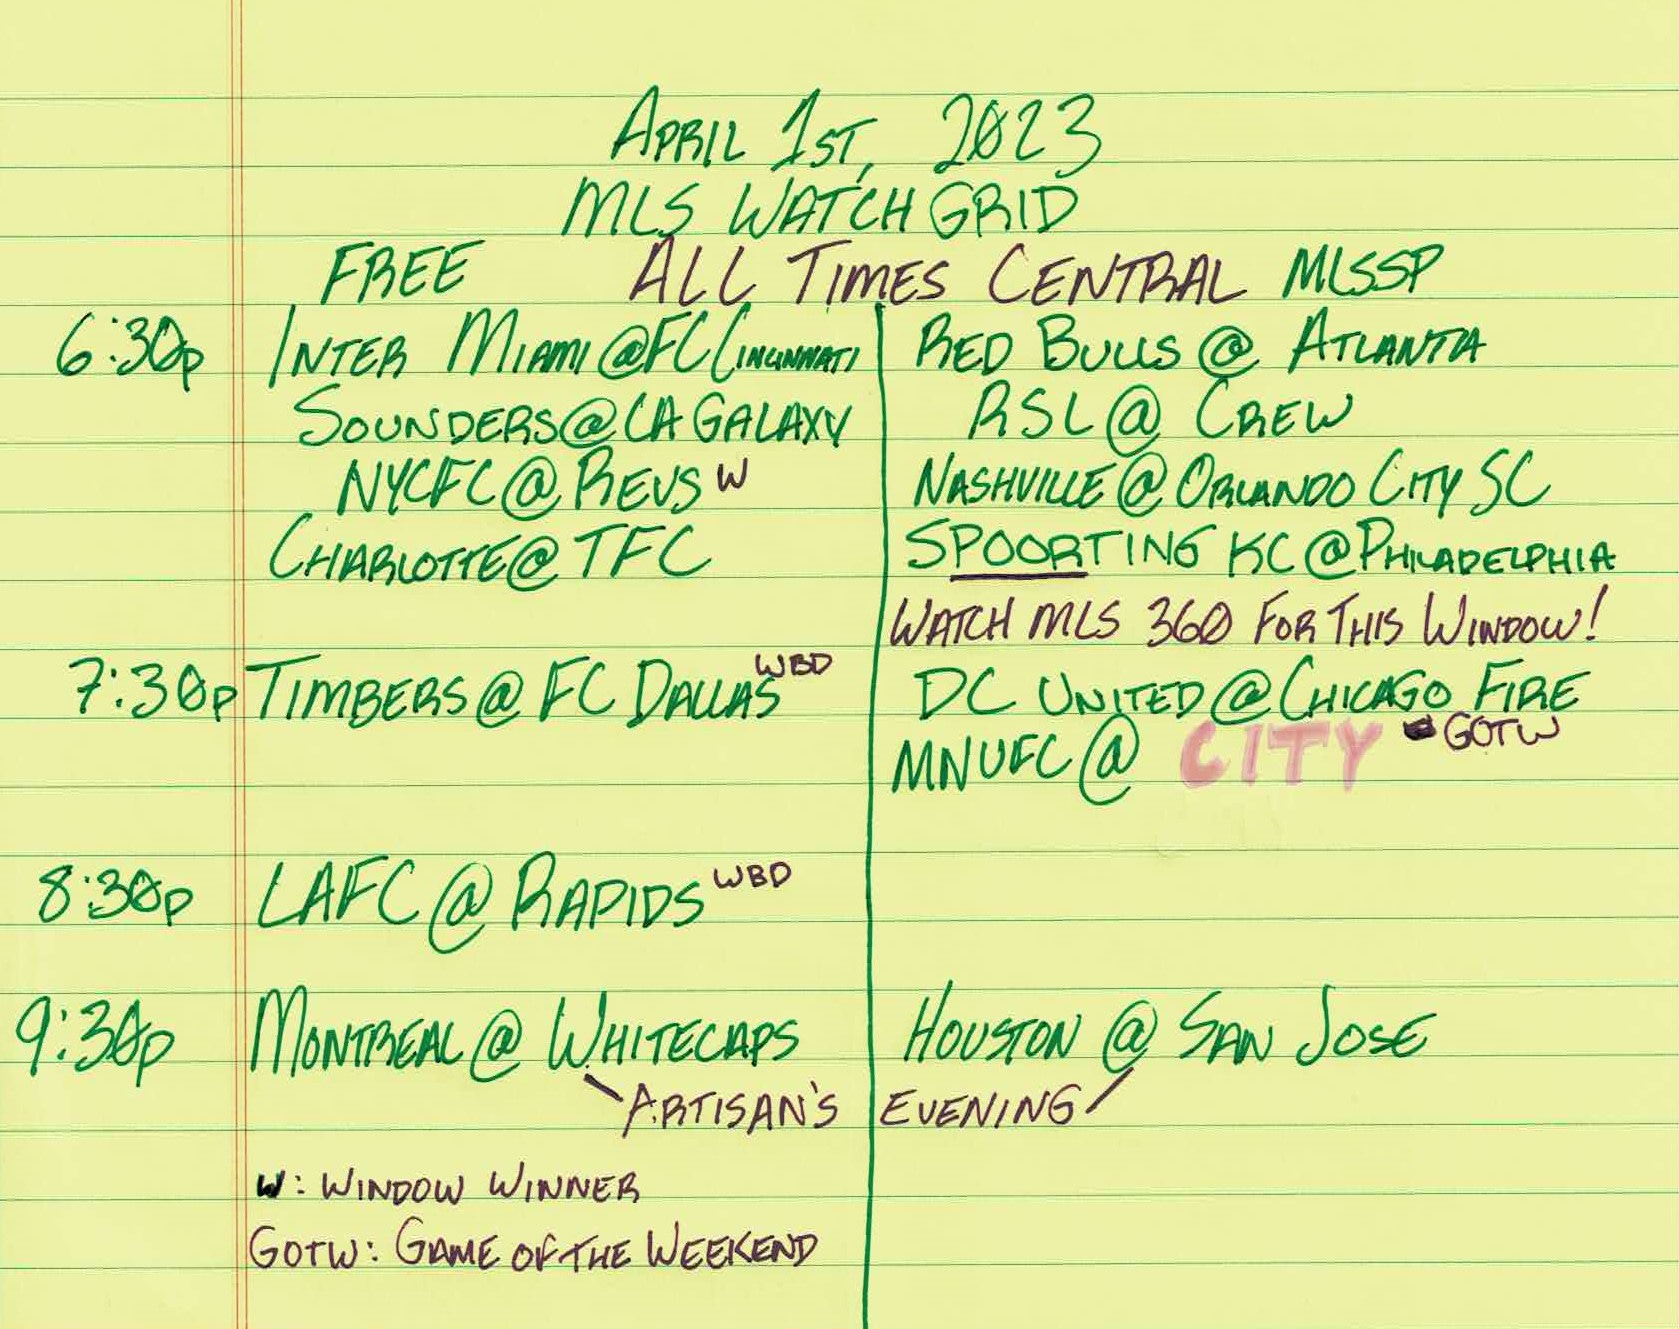 APRIL 1ST, 2023
MLS WATCH GRID
FREE ALL TIMES CENTRAL MLSSP
6:30p INTER MIAMI @ FC CINCINNATI RED BULLS @ ATLANTA
SOUNDERS @ LA GALAXY RSL @ CREW
NYCFC @ REVS W NASHVILLE @ ORLANDO CITY SC
CHARLOTTE @ TFC SPOORTING KC @ PHILADELPHIA
WATCH MLS 360 FOR THIS WINDOW!
7:30p TIMBERS @ FC DALLAS WBD DC UNITED @ CHICAGO FIRE
MNUFC @ CITY - GOTW
8:30p LAFC @ RAPIDS WBD
9:30p MONTREAL @ WHITECAPS HOUSTON @ SAN JOSE
ARTISAN'S EVENING
W: WINDOW WINNER
GOTW: GAME OF THE WEEKEND